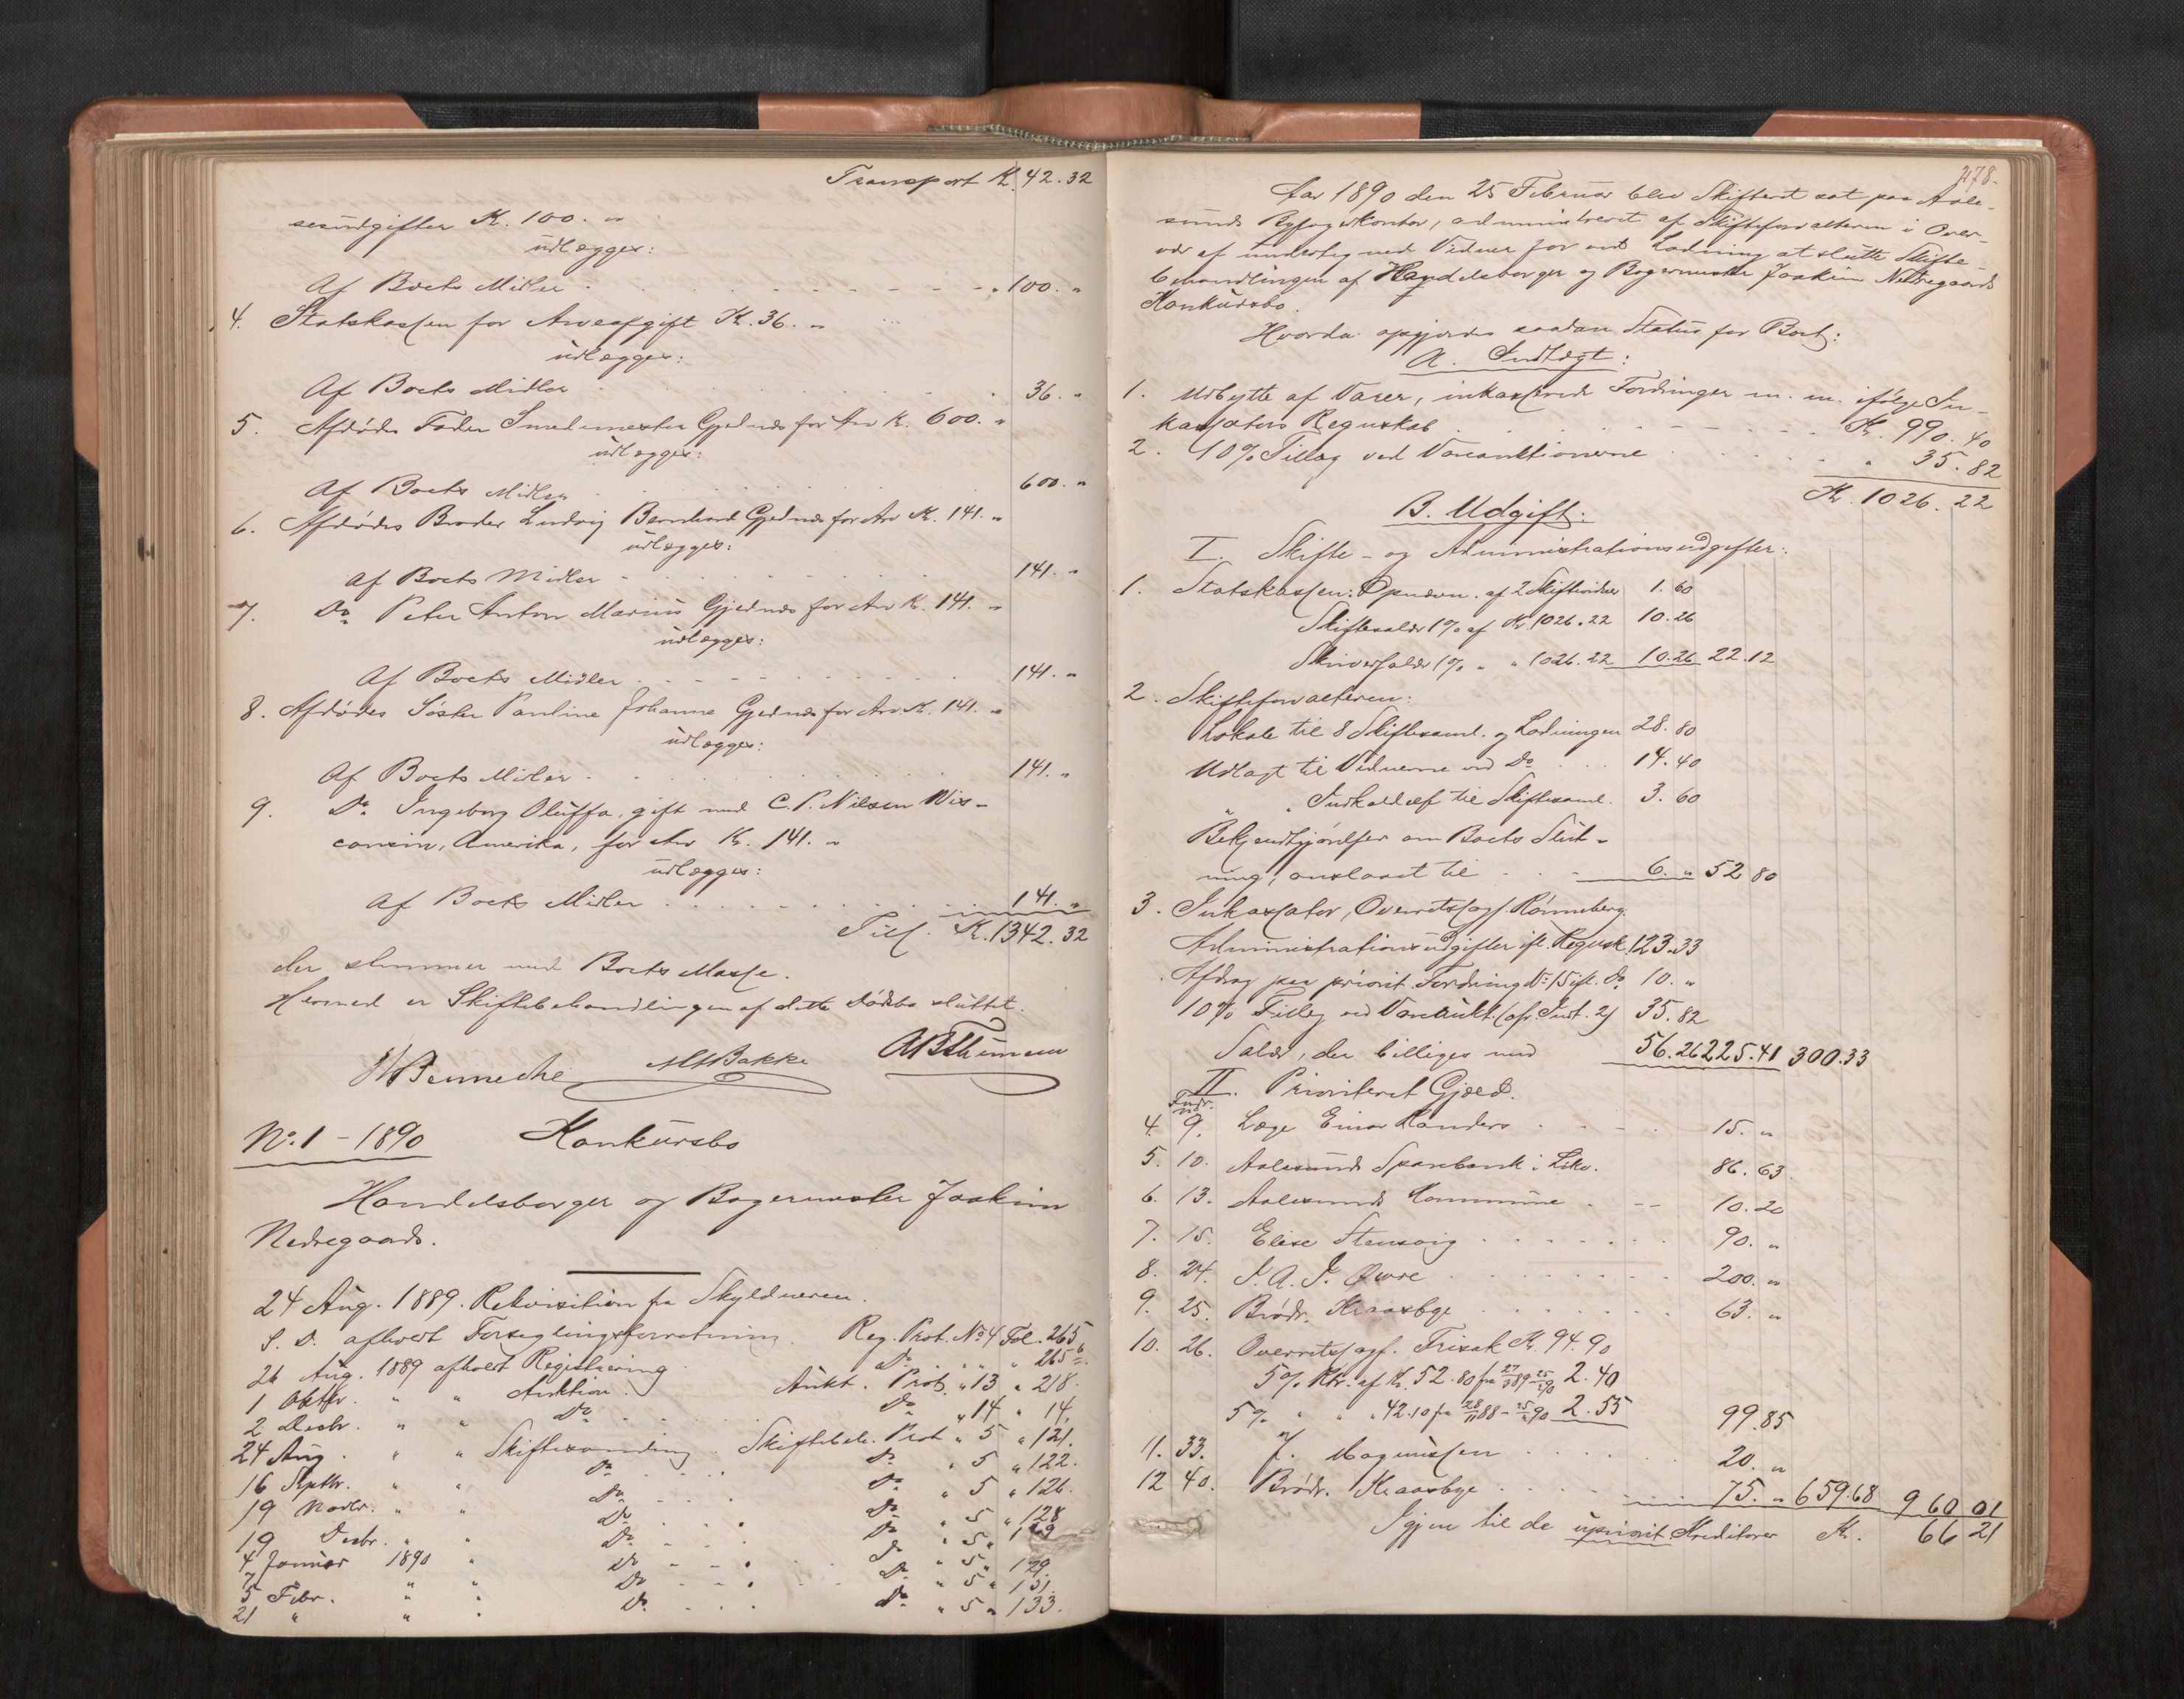 Transport Kr. 42.32
sesudgifter Kr. 100. "
udlægges:
Af Boets Midler . . . . . " 100. "
4. Statskassen for Arveafgift Kr. 36. "
udlægges:
Af Boets Midler . . . . 36. "
5. Afdødes Fader Smedemester Gjednæs for Arv Kr. 600. "
udlægges:
Af Boets Midler . . . . 600. "
6. Afdødes Broder Ludvig Bernhard Gjednæs for Arv Kr. 141. "
udlægges:
Af Boets Midler . . . . 141. "
7. Do. Peter Anton Marius Gjednæs for Arv Kr. 141. "
udlægges:
Af Boets Midler . . . . 141. "
8. Afdødes Søster Pauline Johanne Gjednæs for Arv Kr. 141. "
udlægges:
Af Boets Midler . . . . 141. "
9. Do. Ingeborg Oluffa, gift med C. P. Nilsen Wis-
consin, Amerika, for Arv Kr. 141. "
udlægges:
Af Boets Midler . . . . 141. "
Tils. Kr. 1342. 32
der stemmer med Boets Masse.
Hermed er Skiftebehandlingen af dette Dødsbo sluttet.
Benneche MHBakke
No. 1 - 1890 Konkursbo
Handelsborger og Bagermester Joakim
Nedregaard.
24 Aug. 1889. Rekvisition fra Skyldneren.
S. D. afholdt Forseglingsforretning Reg. Prot. No 4 Fol. 265
26 Aug. 1889 afholdt Registrering . Do. " " " 265 b.
1 Oktbr. " " Auktion . Aukt. Prot. " 13 " 218.
2 Decbr. " " Do. . . . Do. " 14 " 14.
24 Aug. " " Skiftesamling . Skiftebeh. Prot. " 5 " 121.
16 Septbr. " " Do. . . . Do. " 5 " 122.
19 Novbr. " " Do. . . . Do. " 5 " 126.
19 Decbr. " " Do. . . . Do. " 5 " 128
4 Januar 1890 " Do. . . . Do. " 5 " 129
7 " " Do. . . . Do. " 5 " 129.
5 Febr. " " Do. . . . Do. " 5 " 131.
21 " " " Do. . . . Do. " 5 " 133.
278.
Aar 1890 den 25 Februar blev Skifteret sat paa Aale-
sunds Byfogedkontor, administreret af Skifteforvalteren i Over-
vær af undertegnede Vidner for ved Lodning at slutte Skifte-
behandlingen af Handelsborger og Bagermester Joakim Nedregaards
Konkursbo.
Hvorda opgjordes saadan Status for Boet:
A. Indtægt:
1. Udbytte af Varer, inkasserede Fordringer m. m. ifølge In-
kassators Regnskab . . . . Kr. 990. 40
2. 10% Tillæg ved Vareauktionerne . . . . " 35. 82
Kr. 1026. 22
B. Udgift:
I. Skifte- og Administrationsudgifter:
1. Statskassen: Opnævn. af 2 Skiftevidner 1. 60
Skiftesalær 1% af Kr. 1026. 22 10. 26
Skriversalær 1% " " 1026. 22 10. 26 22. 12
2. Skifteforvalteren:
Lokale til 8 Skiftesaml. og Lodningen 28. 80
Udlagt til Vidnerne ved Do. . . . 14. 40
" " Indkaldelse til Skiftesaml. 3. 60
Bekjendtgjørelser om Boets Slut-
ning, anslaaet til . . . 6. " 52 80
3. Inkassator, Overretssagf. Rønneberg.
Administrationsudgifter ifl. Regnsk. 123. 33
Afdrag paa priorit. Fordring No. 15 ifl. Do. 10. "
10% Tillæg ved Vareaukt. (cfr. Indt. 2) 35. 82
Salær, der billiges med 56. 26 225. 41 300. 33
II. Prioriteret Gjæld.
Fordr.
No
4. 9. Læge Einar Landers . . . 15. "
5. 10. Aalesunds Sparebank i Likv. 86. 63
6. 13. Aalesunds Kommune . . . 10. 20
7. 15. Elise Stensvig . . . . 90. "
8. 24. I. A. I. Øwre . . . . 200. "
9. 25. Brødr. Kraasbye . . . . 63. "
10. 26. Overretssagf. Frisak Kr. 94. 90
5% Rtr. af Kr. 52. 80 fra 27/3 89 - 25/2 90 2. 40
5% " " " 42. 10 fra 28/11 88 - 25/2 90 2. 55 99. 85
11. 33. J. Magnussen . . . . 20. "
12 40. Brødr. Kraasbye . . . . 75. " 659. 68 960 01
Igjen til de upriorit. Kreditorer Kr. 66 21